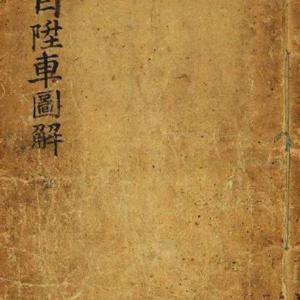 自陞車圖解